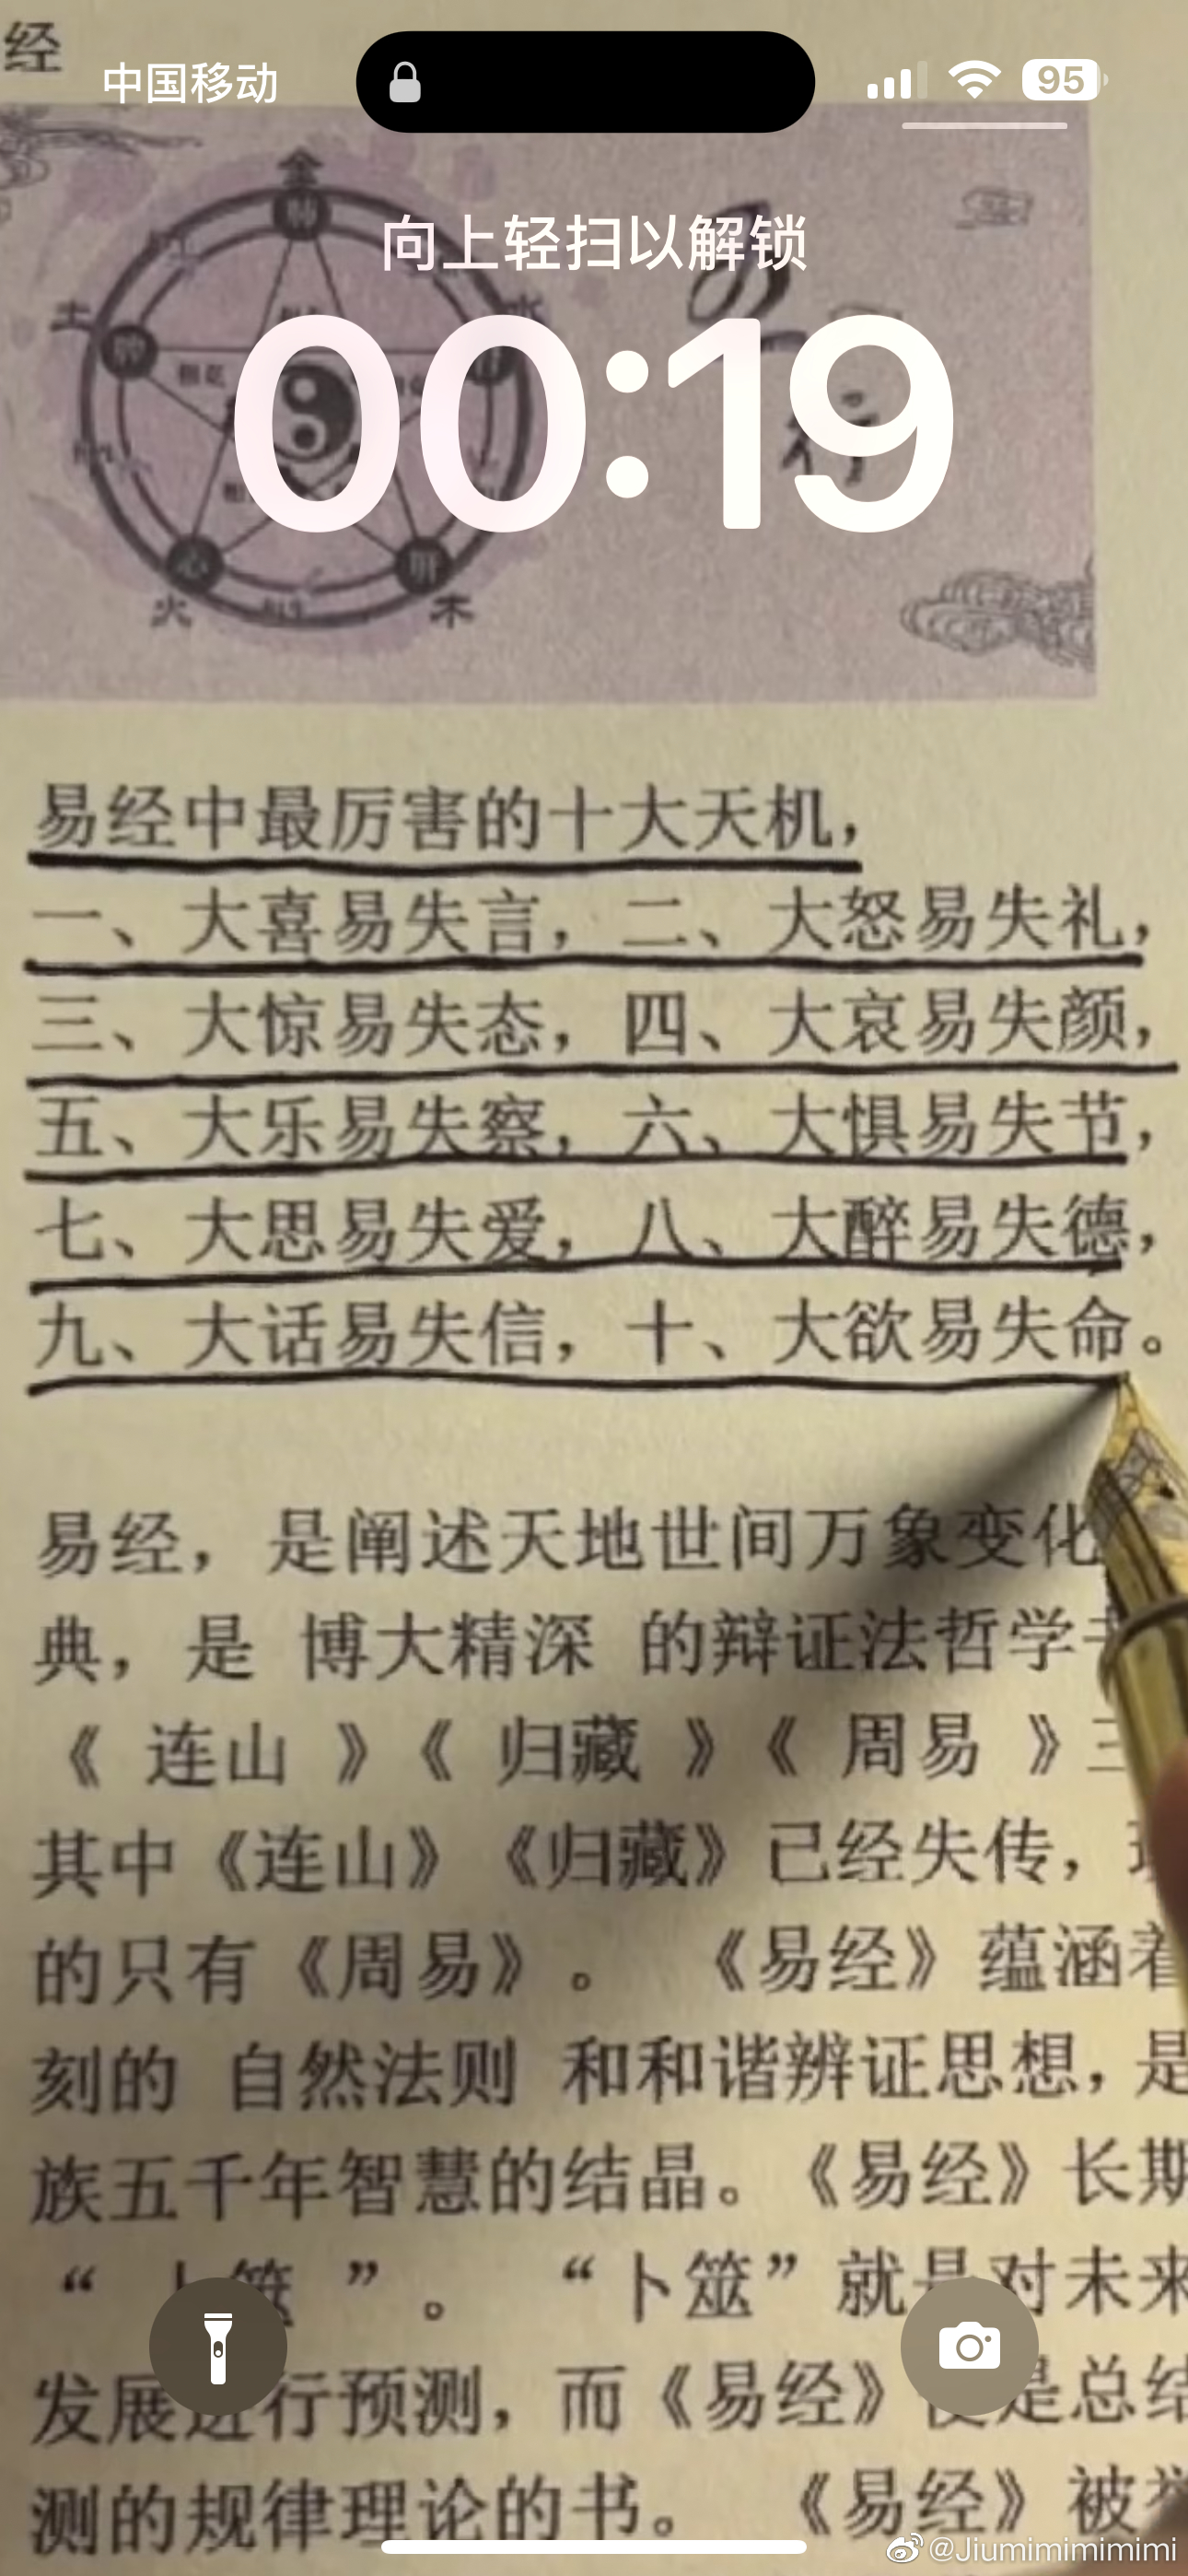 经
中国移动
95
向上轻扫以解锁
00:19
金
土
水
火
木
心
肝
行
易经中最厉害的十大天机，
一、大喜易失言，二、大怒易失礼，
三、大惊易失态，四、大哀易失颜，
五、大乐易失察，六、大惧易失节，
七、大思易失爱，八、大醉易失德，
九、大话易失信，十、大欲易失命。
易经，是阐述天地世间万象变化
典，是 博大精深 的辩证法哲学
《 连山 》《 归藏 》《 周易 》三
其中《连山》《归藏》已经失传，
的只有《周易》。 《易经》蕴涵着
刻的 自然法则 和和谐辨证思想，是
族五千年智慧的结晶。《易经》长期
“ 卜筮 ”。 “卜筮”就是对未来
发展进行预测，而《易经》便是总结
测的规律理论的书。 《易经》被
@Jiumimimimimi